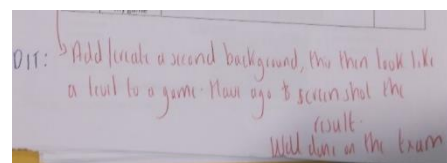 DIT: Add/create a second background, this then look like
a level to a game. Have ago & screenshot the
result.
Well done on the Exam